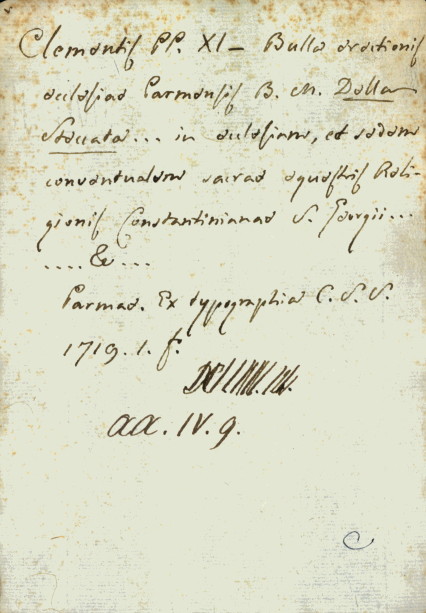 Clementis PP. XI — Bulla erectionis
ecclesiae Parmensis B. M. Della
Steccata ... in ecclesiam, et sedem
conventualem sacrae equestris Reli-
gionis Constantinianae S. Georgii ...
.... & ...
Parmae. Ex typographia C. S. S.
1719. 1. f.
aa. IV. 9.